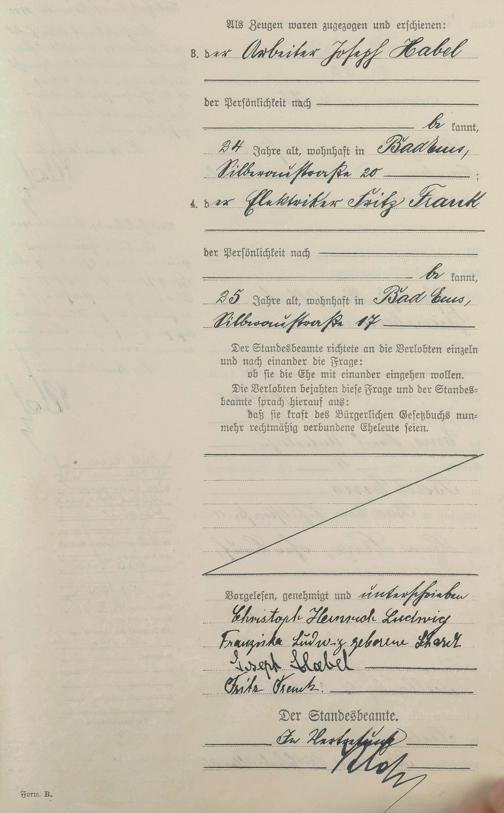 Als Zeugen waren zugezogen und erschienen:
3. der Arbeiter Joseph Habel
der Persönlichkeit nach
bekannt,
24 Jahre alt, wohnhaft in Bad Ems,
Silberaustraße 20 ;
4. der Elektriker Fritz Frank
der Persönlichkeit nach
bekannt,
25 Jahre alt, wohnhaft in Bad Ems,
Silberaustraße 17
Der Standesbeamte richtete an die Verlobten einzeln
und nach einander die Frage:
ob sie die Ehe mit einander eingehen wollen.
Die Verlobten bejahten diese Frage und der Standes-
beamte sprach hierauf aus:
daß sie kraft des Bürgerlichen Gesetzbuchs nun-
mehr rechtmäßig verbundene Eheleute seien.
Vorgelesen, genehmigt und unterschrieben
Christoph Heinrich Ludwig
Franziska Ludwig geborene
Joseph Habel
Fritz Frank.
Der Standesbeamte.
In Vertretung
Form. B.